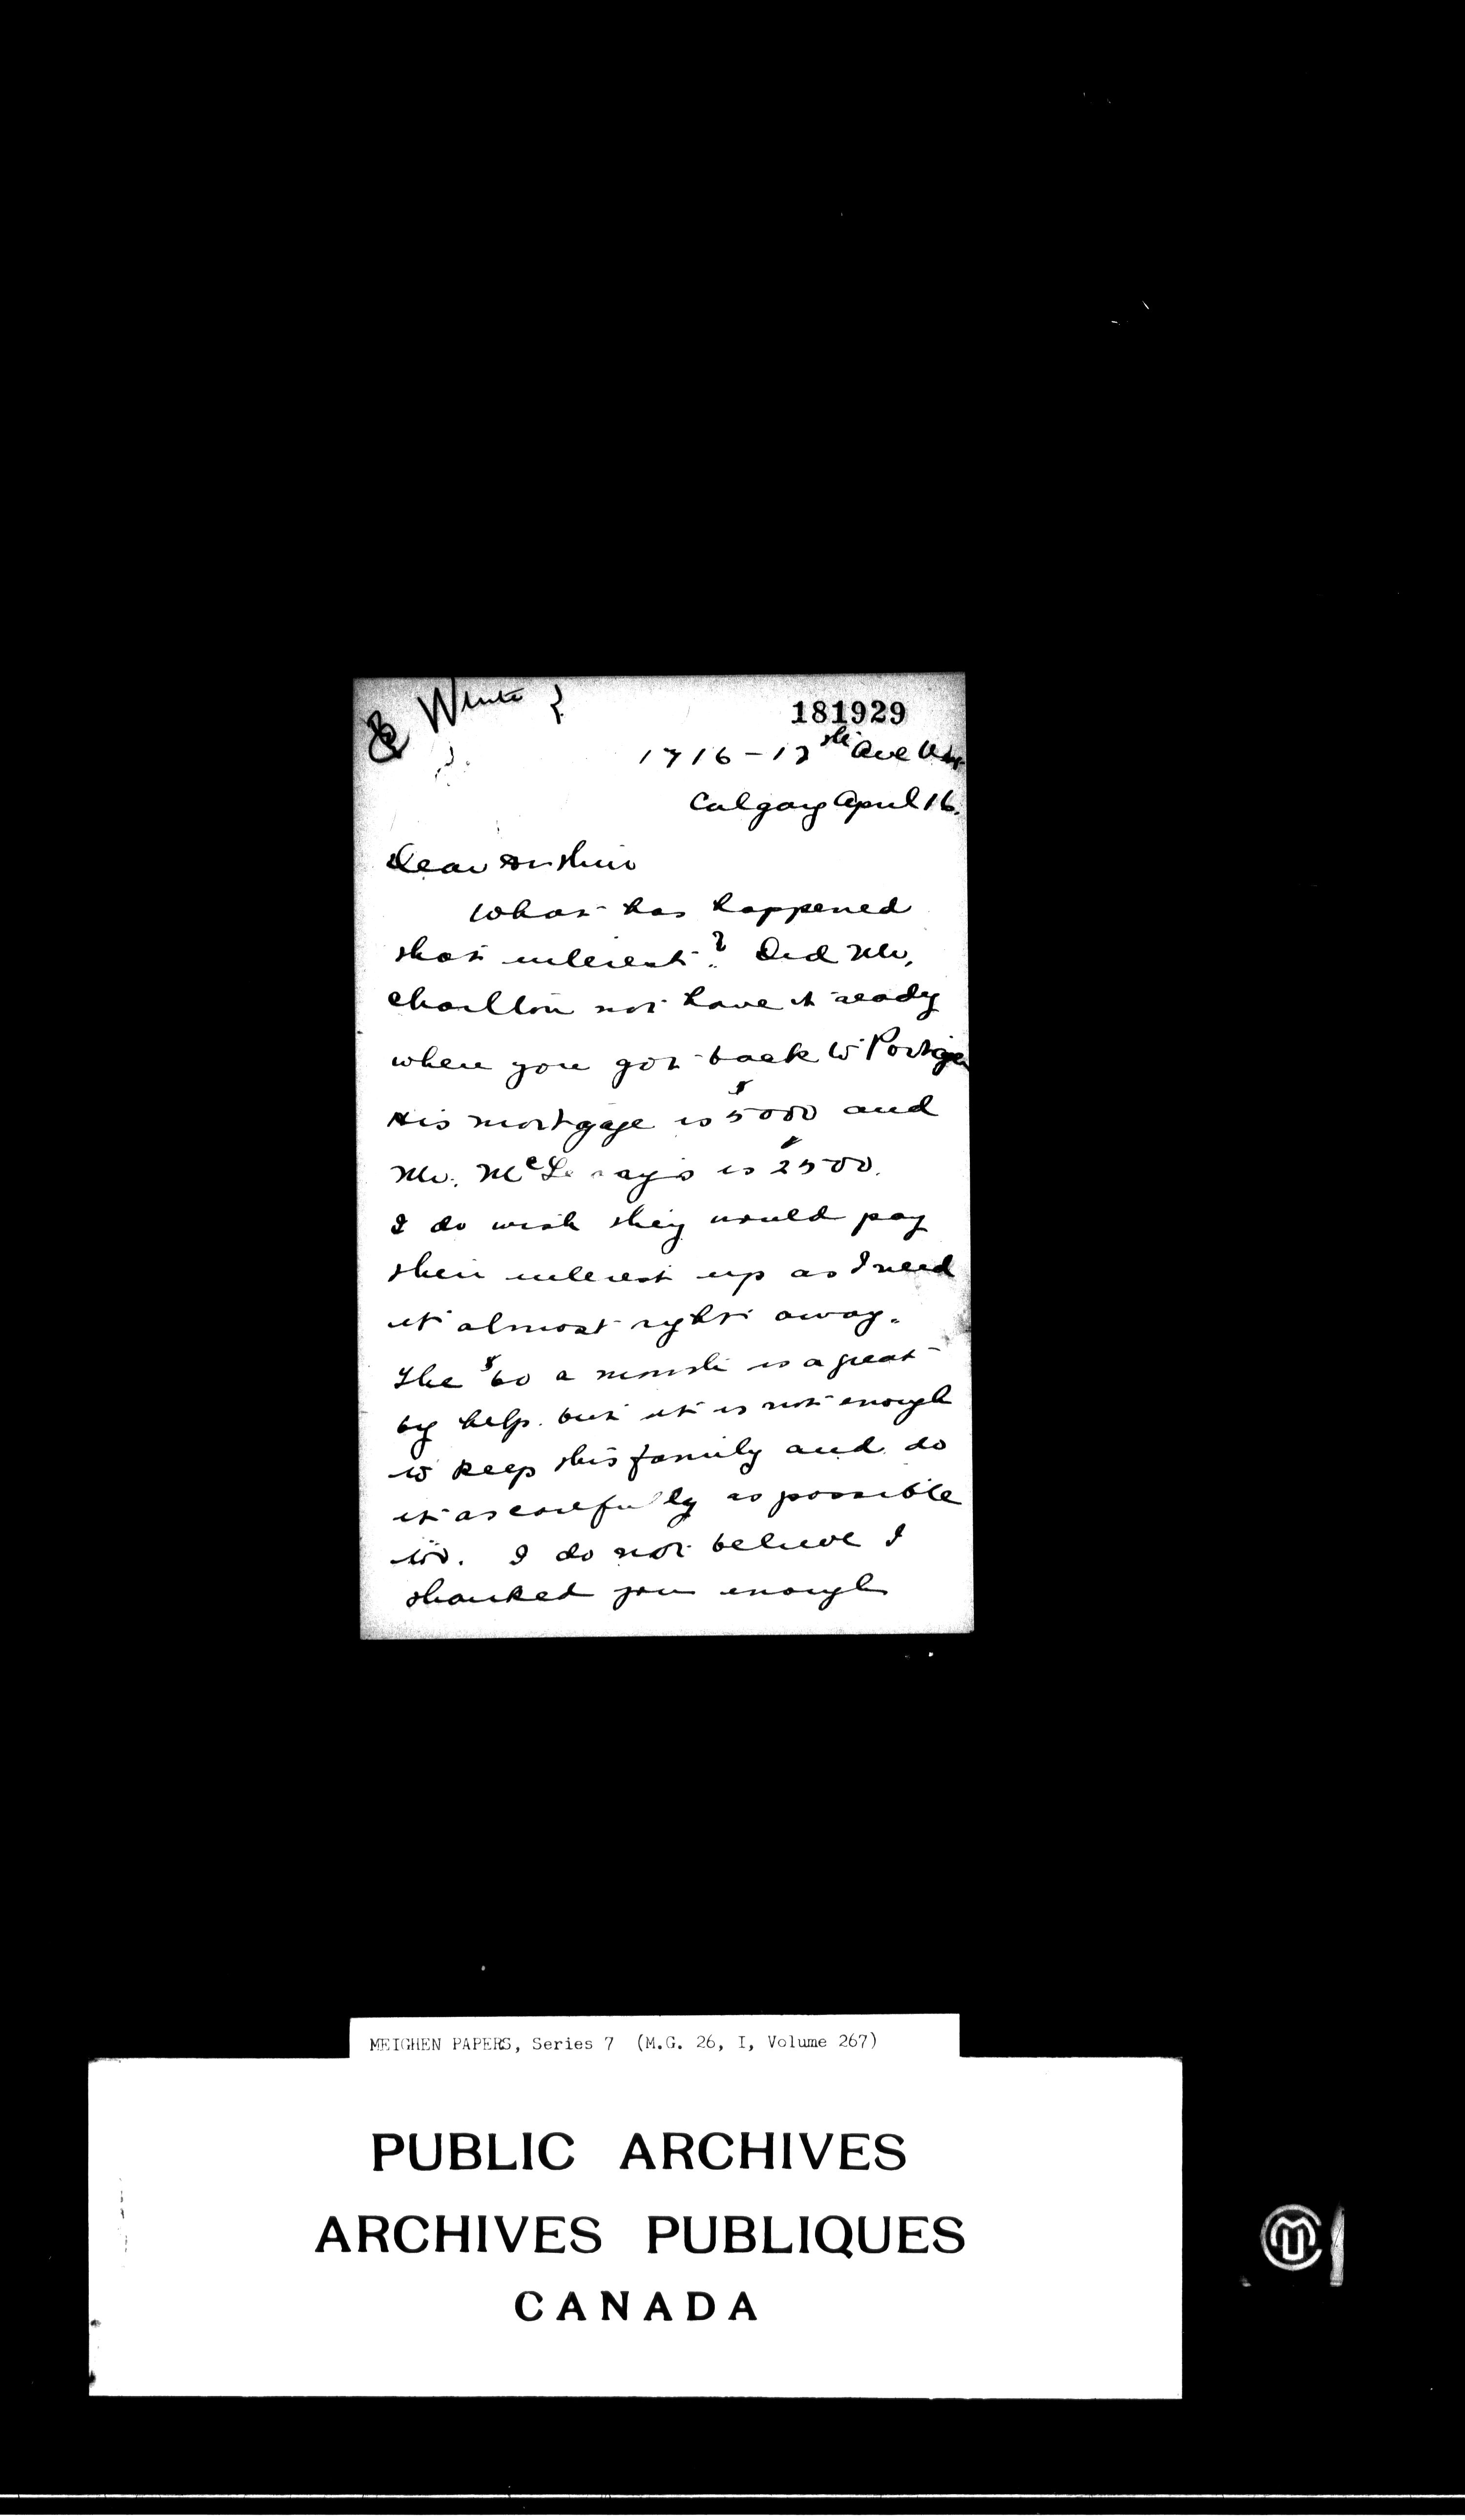 White
181929
1716 - 12th Ave West
Calgary April 16.
Dear Arthur
What has happened
that interest? Did Mr.
Charlton not have it ready
when you got back to Portage
His mortgage is $5000 and
Mr. is $2500.
I do wish they would pay
their interest up as I need
it almost right away.
The $60 a month is a great
big help. but it is not enough
to keep this family and do
it as carefully as possible
too. I do not believe I
thanked you enough
MEIGHEN PAPERS, Series 7 (M.G. 26, I, Volume 267)
PUBLIC ARCHIVES
ARCHIVES PUBLIQUES
CANADA